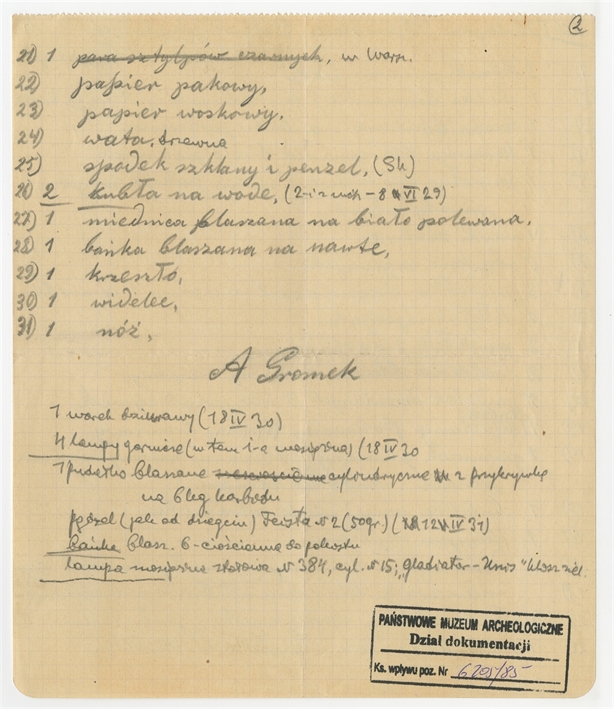 2
21) 1 para sztylpów czarnych, w Warsz.
22) papier pakowy,
23) papier woskowy,
24) wata drzewna
25) spodek szklany i penzel, (Sk)
26) 2 kubła na wodę, (2-i z mok - 8 VI 29)
27) 1 miednica blaszana na biało polewana,
28) 1 bańka blaszana na nawtę,
29) 1 krzesło,
30) 1 widelec,
31) 1 nóż,
A Gromek
1 worek dziurawy (18 IV 30)
4 lampy górnicze (w tem 1-a mosiężna) (18 IV 30
1 pudełko blaszane cylindryczne z przykrywką
na 6 kg karbidu
(jak od dziegciu) N 2 (50gr) (12 IV 31)
bańka blasz. 6-ciościenna do pokostu
lampa mosiężna stołowa N 384, cyl. N 15; "Gladiator - Unis" klosz ziel.
PAŃSTWOWE MUZEUM ARCHEOLOGICZNE
Dział dokumentacji
Ks. wpływu poz. Nr 6205/85